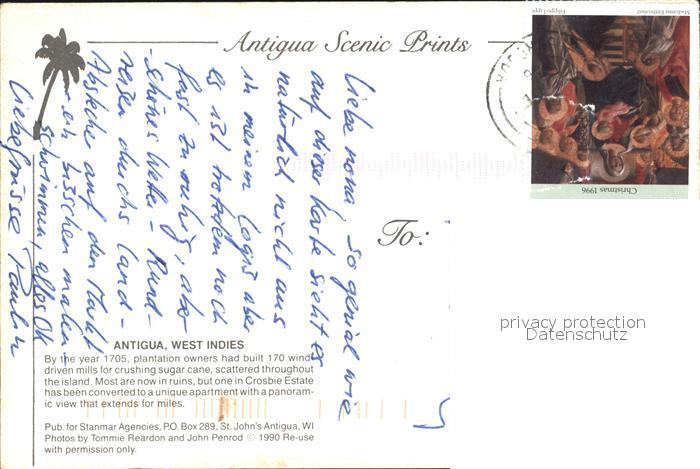 Antigua Scenic Prints
Filippo Lippi
Madonna Enthroned
Christmas 1996
To:
Liebe Mama, so genial wie
auf dieser Karte sieht es
natürlich nicht aus
in meinem Logis aber
es ist trotzdem noch
fast zu ruhig, aber
schönes Wetter - Rund-
reisen durchs Land -
Abstecher auf den Markt
ein bisschen malen -
schwimmen, alles OK
Liebe Grüsse
privacy protection
Datenschutz
ANTIGUA, WEST INDIES
By the year 1705, plantation owners had built 170 wind
driven mills for crushing sugar cane, scattered throughout
the island. Most are now in ruins, but one in Crosbie Estate
has been converted to a unique apartment with a panoram-
ic view that extends for miles.
Pub. for Stanmar Agencies, P.O. Box 289, St. John's Antigua, WI
Photos by Tommie Reardon and John Penrod © 1990 Re-use
with permission only.